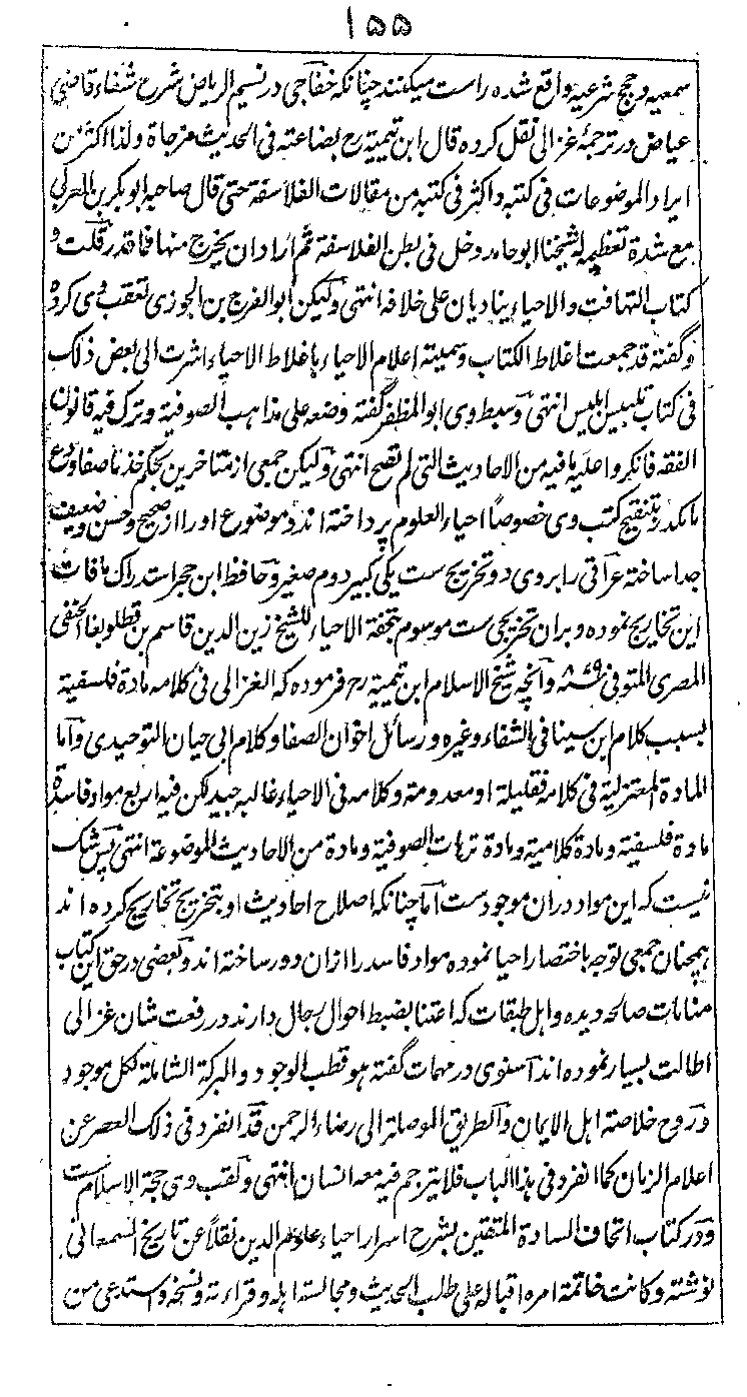 ۱۵۵
سمعیه و حجج شرعیه واقع شده راست میکنند چنانکه خفاجی در نسیم الریاض شرح شفاء قاضی
عیاض در ترجمهٔ غزالی نقل کرده قال ابن تیمیة رح بضاعته فی الحدیث مزجاة ولذا اکثر من
ایراد الموضوعات فی کتبه و اکثر فی کتبه من مقالات الفلاسفة حتی قال صاحبه ابو بکر بن العربی
مع شدة تعظیمه له شیخنا ابو حامد دخل فی بطن الفلاسفة ثم اراد ان یخرج منها فما قدر قلت و
کتاب التهافت والاحیاء ینادیان علی خلافه انتهی ولیکن ابو الفرج بن الجوزی تعقب وی کرده
و گفته قد جمعت اغلاط الکتاب وسمیته اعلام الاحیاء باغلاط الاحیاء اشرت الی بعض ذلک
فی کتاب تلبیس ابلیس انتهی و سبط وی ابو المظفر گفته وضعه علی مذاهب الصوفیة وترک فیه قانون
الفقه فانکروا علیه ما فیه من الاحادیث التی لم تصح انتهی ولیکن جمعی از متاخرین بحکم خذ ما صفا ودع
ما کدر بتنقیح کتب وی خصوصاً احیاء العلوم پرداخته اند و موضوع او را از صحیح و حسن و ضعیف
جدا ساخته عراقی را بروی دو تخریج ست یکی کبیر دوم صغیر و حافظ ابن حجر استدراک ما فات
این تخاریج نموده و بران تخریجی ست موسوم بتحفة الاحیاء للشیخ زین الدین قاسم بن قطلوبغا الحنفی
المصری المتوفی ۸۷۹ﻫ و آنچه شیخ الاسلام ابن تیمیة رح فرموده که الغزالی فی کلامه مادة فلسفیة
بسبب کلام ابن سینا فی الشفاء وغیره و رسائل اخوان الصفا وکلام ابی حیان التوحیدی واما
المادة المعتزلیة فی کلامه فقلیلة او معدومة وکلامه فی الاحیاء غالبه جید لکن فیه اربع مواد فاسدة
مادة فلسفیة ومادة کلامیة ومادة ترهات الصوفیة ومادة من الاحادیث الموضوعة انتهی پس شک
نیست که این مواد دران موجود ست اما چنانکه اصلاح احادیث او بتخریج تخاریج کرده اند
همچنان جمعی توجه باختصار احیا نموده مواد فاسد را ازان دور ساخته اند و بعضی در حق این کتاب
منامات صالحه دیده و اهل طبقات که اعتنا بضبط احوال رجال دارند در رفعت شان غزالی
اطالت بسیار نموده اند اسنوی در مهمات گفته هو قطب الوجود والبرکة الشاملة لکل موجود
وروح خلاصة اهل الایمان والطریق الموصلة الی رضاء الرحمن قد انفرد فی ذلک العصر عن
اعلام الزمان کما انفرد فی هذا الباب فلا یترجم فیه معه انسان انتهی و لقب وی حجة الاسلام ست
و در کتاب اتحاف السادة المتقین بشرح اسرار احیاء علوم الدین نقلاً عن تاریخ السمعانی
نوشته و کانت خاتمة امره اقباله علی طلب الحدیث ومجالسة اهله وقراءته ونسخه واستدعی من